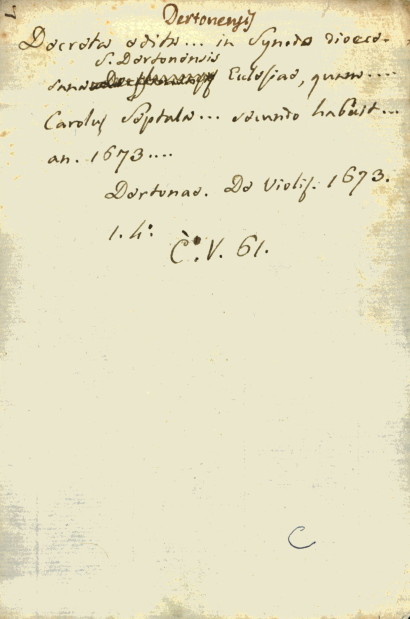 Dertonensis
Decreta edita... in Synodo dioece-
S. Dertonensis
sana Ecclesiae, quam....
Carolus Septala... secundo habuit...
an. 1673....
Dertonae. De Violis. 1673.
1. 4°.
C°. V. 61.
C